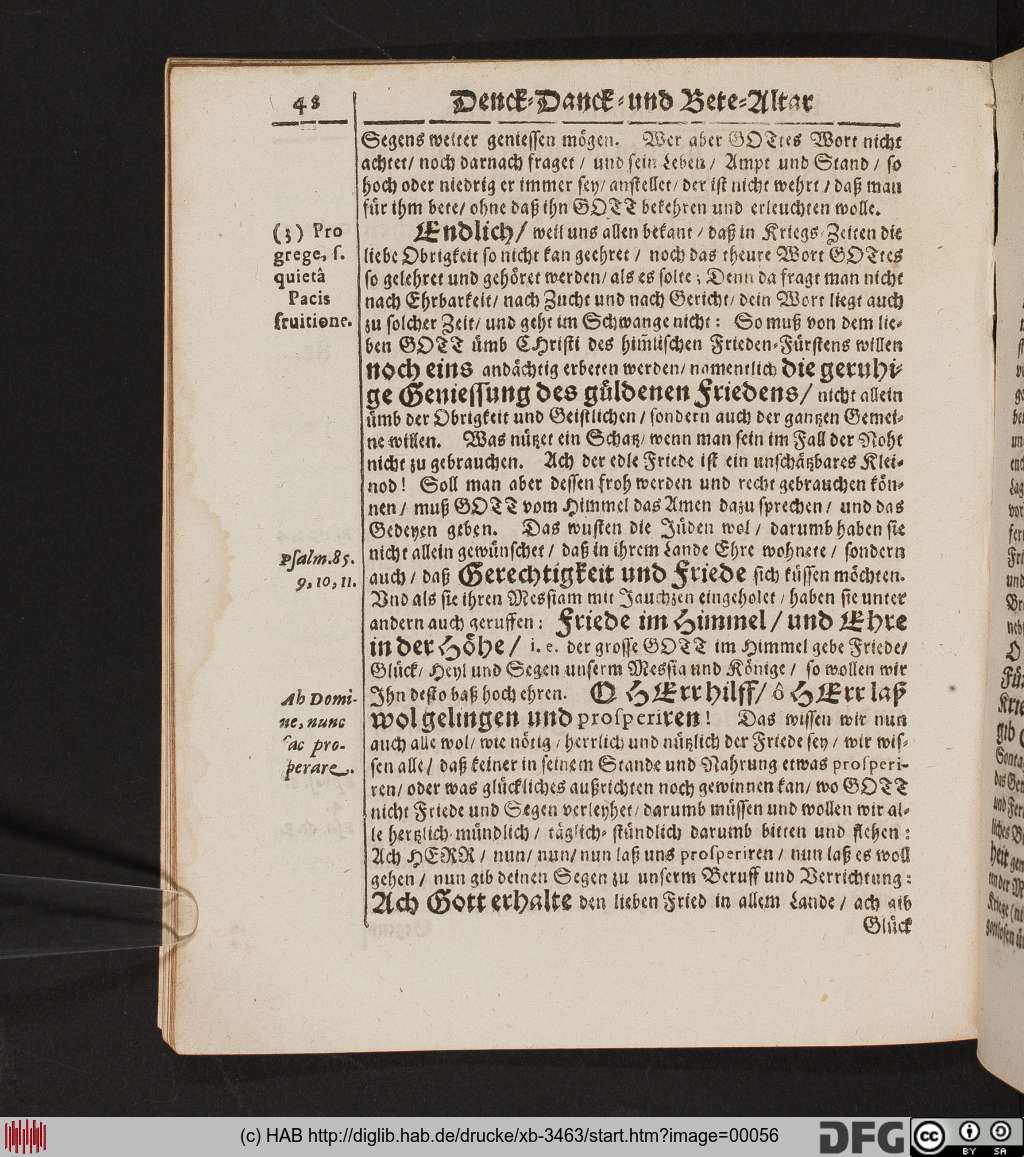 48
Denck-Danck-und Bete-Altar
Segens weiter geniessen mögen. Wer aber GOTtes Wort nicht
achtet/ noch darnach fraget/ und sein Leben/ Ampt und Stand/ so
hoch oder niedrig er immer sey/ anstellet/ der ist nicht wehrt/ daß man
für ihm bete/ ohne daß ihn GOTT bekehren und erleuchten wolle.
(3) Pro
grege, ſ.
quietâ
Pacis
fruitione.
Endlich/ weil uns allen bekant/ daß in Kriegs-Zeiten die
liebe Obrigkeit so nicht kan geehret/ noch das theure Wort GOTtes
so gelehret und gehöret werden/ als es solte; Denn da fragt man nicht
nach Ehrbarkeit/ nach Zucht und nach Gericht/ dein Wort liegt auch
zu solcher Zeit/ und geht im Schwange nicht: So muß von dem lie-
ben GOTT ümb CHristi des him̃lischen Frieden-Fürstens willen
noch eins andächtig erbeten werden/ namentlich die geruhi-
ge Geniessung des güldenen Friedens/ nicht allein
ümb der Obrigkeit und Geistlichen/ sondern auch der gantzen Gemei-
ne willen. Was nützet ein Schatz/ wenn man sein im Fall der Noht
nicht zu gebrauchen. Ach der edle Friede ist ein unschätzbares Klei-
nod! Soll man aber dessen froh werden und recht gebrauchen kön-
nen/ muß GOTT vom Himmel das Amen dazu sprechen/ und das
Gedeyen geben. Das wusten die Jüden wol/ darumb haben sie
nicht allein gewünschet/ daß in ihrem Lande Ehre wohnete/ sondern
Psalm.85.
9, 10, 11.
auch/ daß Gerechtigkeit und Friede sich küssen möchten.
Vnd als sie ihren Messiam mit Jauchzen eingeholet/ haben sie unter
andern auch geruffen: Friede im Himmel/ und Ehre
in der Höhe/ i. e. der grosse GOTT im Himmel gebe Friede/
Glück/ Heyl und Segen unserm Messia und Könige/ so wollen wir
Ab Domi-
ne, nunc
fac pro-
sperare.
Ihn desto baß hoch ehren. O HErr hilff/ ô HErr laß
wol gelingen und prosperiren! Das wissen wir nun
auch alle wol/ wie nötig/ herrlich und nützlich der Friede sey/ wir wis-
sen alle/ daß keiner in seinem Stande und Nahrung etwas prosperi-
ren/ oder was glückliches außrichten noch gewinnen kan/ wo GOTT
nicht Friede und Segen verleyhet/ darumb müssen und wollen wir al-
le hertzlich-mündlich/ täglich-stündlich darumb bitten und flehen:
Ach HERR/ nun/ nun/ nun laß uns prosperiren/ nun laß es woll
gehen/ nun gib deinen Segen zu unserm Beruff und Verrichtung:
Ach Gott erhalte den lieben Fried in allem Lande/ ach gib
Glück
(c) HAB http://diglib.hab.de/drucke/xb-3463/start.htm?image=00056
DFG
cc
BY SA